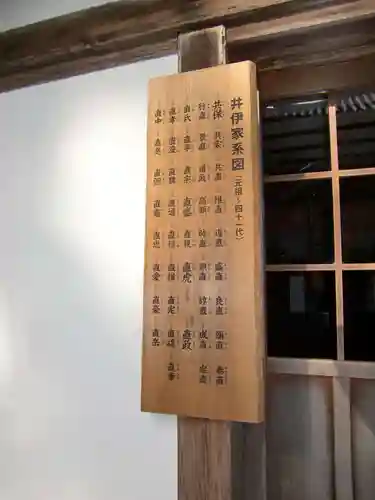 井伊家系図(元祖~四十一代)
共保 共家 共直 惟直 道直 盛直 良直 彌直 泰直
行直 景直 道政 高顕 時直 顕直 諄直 成直 忠直
直氏 直平 直宗 直盛 直親 直虎 直政
直孝 直澄 直興 直通 直恒 直惟 直定 直禔 直幸
直中 直亮 直弼 直憲 直忠 直愛 直豪 直岳